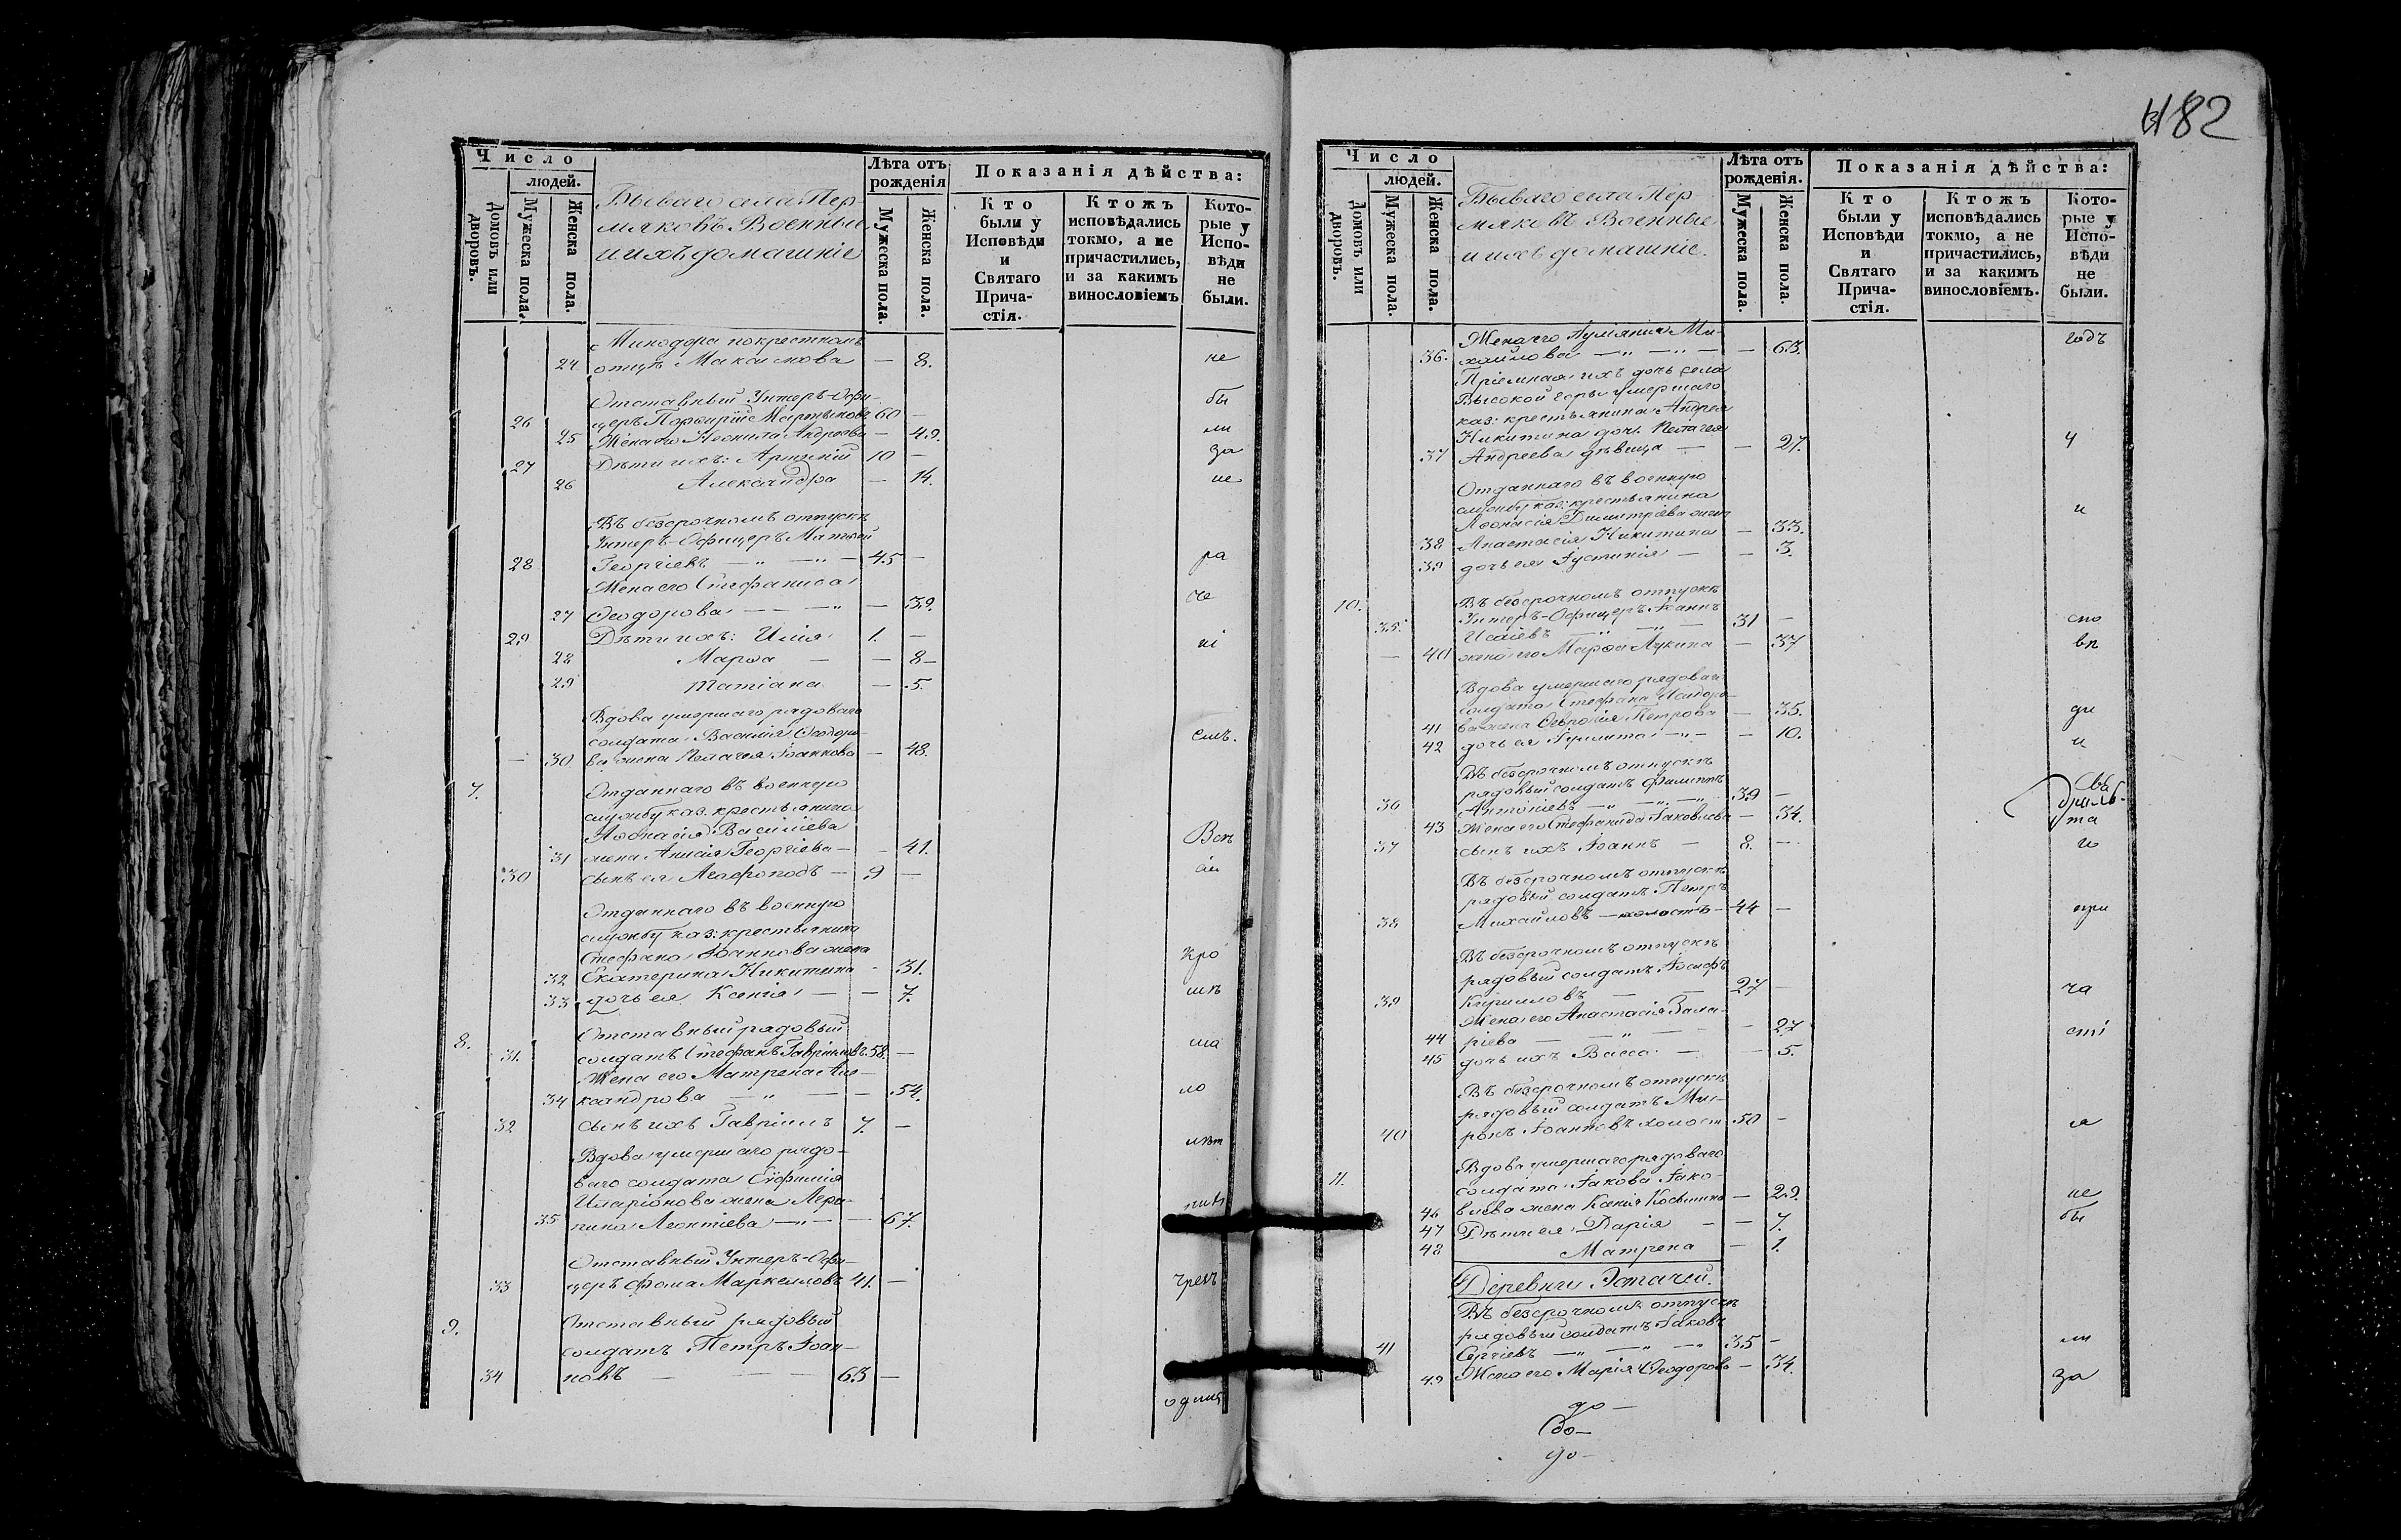 482
Число
людей.
Домовъ или дворовъ.
Мужеска пола.
Женска пола.
Бываго села Пер-
мяковъ Военные
и ихъ домашніе
Лѣта отъ рожденія
Мужеска пола.
Женска пола.
Показанія дѣйства:
Кто были у Исповѣди и Святаго Прича-стія.
Ктожъ исповѣдались токмо, а не причастились, и за какимъ винословіемъ
Кото-рые у Испо-вѣди не были.
Минодора по крестномъ
24 отцѣ Максимова — 8. не
Отставный Унтеръ-Офи- бы
26 церъ Порфирій Мартыновъ 60 —
25 Жена его Неонила Андреева — 49. ли
27 Дѣти ихъ: Артемій 10 — за
26 Александра — 14. не
Въ безсрочномъ отпускѣ
Унтеръ-Офицеръ Матѳей
28 Георгіевъ — „ — „ — 45 — ра
Жена его Стефанида
27 Ѳеодорова — — „ — 39. че
29 Дѣти ихъ: Илія 1. — ні
28 Марѳа — — 8 —
29 Татіана — 5.
Вдова умершаго рядоваго
солдата Василія Ѳеодоро-
— 30 ва жена Пелагея Іоаннова — 48. емъ.
7. Отданнаго въ военную
службу каз. крестьянина
Аѳонасія Василіева
31 жена Анисія Георгіева — — 41. Всѣ
30 сынъ ея Агафоподъ — 9 —
Отданнаго въ военную
службу каз: крестьянина
Стефана Іоаннова жена Кро
32 Екатерина Никитина — 31.
33 дочь ея Ксенія — — 7. мѣ
8. Отставный рядовый
31. солдатъ Стефанъ Гавріиловъ 58. — ма
Жена его Матрена Але-
34 ксандрова — „ — — 54. ло
32 сынъ ихъ Гавріилъ 7. —
Вдова умершаго рядо- лѣт
ваго солдата Евфимія
Иларіонова жена Агра-
35 пина Леонтіева — „ — — 67. нихъ
Отставный Унтеръ-Офи-
33 церъ Ѳома Маркелловъ 41. — чрезъ
9. Отставный рядовый
солдатъ Петръ Іоан-
34 новъ — — — 63 —
одинъ
Число
людей.
Домовъ или дворовъ.
Мужеска пола.
Женска пола.
Бываго села Пер
мяковъ Военные
и ихъ домашніе.
Лѣта отъ рожденія.
Мужеска пола.
Женска пола.
Показанія дѣйства:
Кто были у Исповѣди и Святаго Прича-стія.
Ктожъ исповѣдались токмо, а не причастились, и за какимъ винословіемъ.
Кото-рые у Испо-вѣди не были.
Жена его Аулянія Ми- годъ
36. хайлова — „ — „ — — 63.
Пріемная ихъ дочь села
Высокой горы умершаго
каз: крестьянина Андрея
Никитина дочь Пелагея ч
37 Андреева дѣвица — — 27.
Отданнаго въ военную
службу каз: крестьянина и
Аѳонасія Димитріева жена
38 Анастасія Никитина — 33.
39 дочь ея Іустинія — — 3.
10. Въ безсрочномъ отпускѣ
Унтеръ-Офицеръ Іоаннъ спо
35. Исаіевъ — „ — „ — 31 —
— 40 жена его Марѳа Лукина — 37 вѣ
Вдова умершаго рядоваго
солдата Стефана Исидоро-
41 ва жена Ѳевронія Петрова — 35. ди
42 дочь ея Іулитта — „ — — 10. и
Въ безсрочномъ отпускѣ
рядовый солдатъ Филиппъ
36 Антоніевъ — „ — „ — „ 39 —
43 Жена его Стефанида Іаковлева — 34. та
37 сынъ ихъ Іоаннъ — 8. — го
Въ безсрочномъ отпускѣ
рядовый солдатъ Петръ
38 Михайловъ — холостъ — 44 — при
Въ безсрочномъ отпускѣ
рядовый солдатъ Іосифъ
39 Кирилловъ — — 27 — ча
Жена его Анастасія Вале-
44 ріева — — „ — — 27 сті
45 дочь ихъ Васса — — 5.
Въ безсрочномъ отпускѣ
рядовый солдатъ Ми-
40 ронъ Іоанновъ холост 50 — я
11. Вдова умершаго рядоваго
солдата Іакова Іако-
46 влева жена Ксенія Косьмина — 29. не
47 Дѣти ея Дарія — — 7. бы
48 Матрена — 1.
Деревни Эштачей.
Въ безсрочномъ отпускѣ
рядовый солдатъ Іаковъ
41 Сергіевъ — „ — „ — „ 35 — ли
49 Жена его Марія Ѳеодорова — 34. за
до —
до —